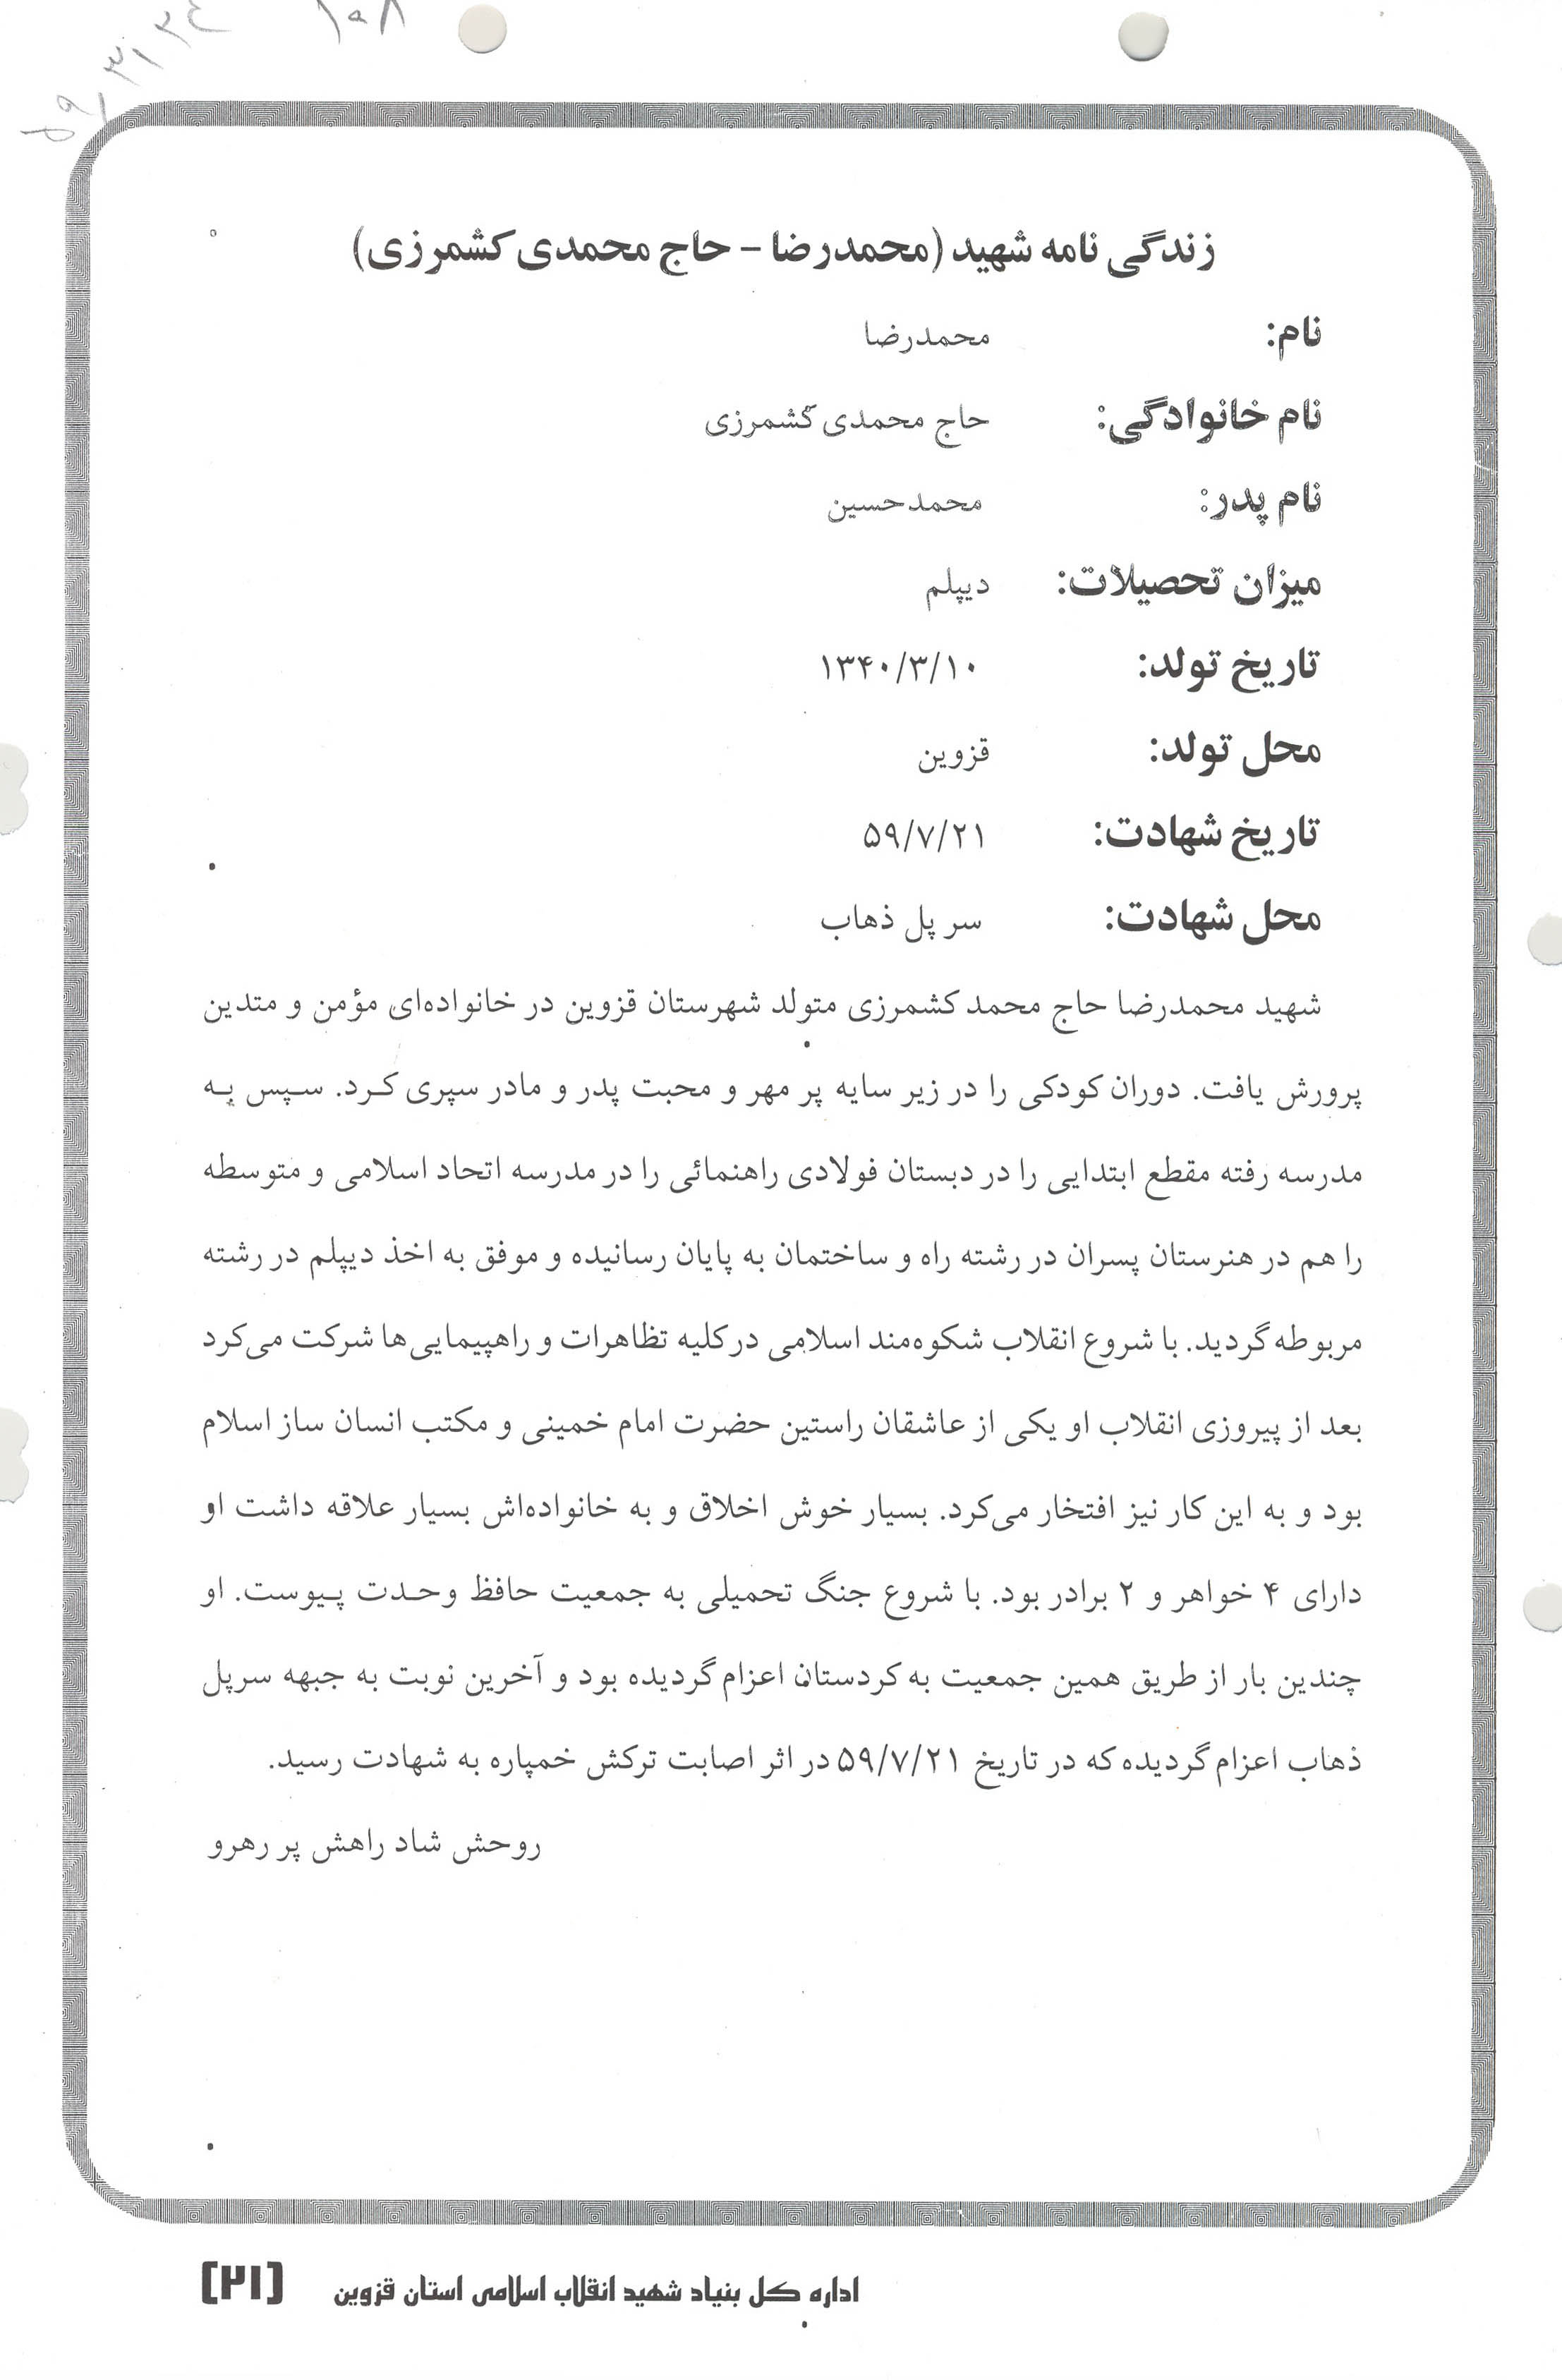 ۱۰۸
زندگی نامه شهید (محمدرضا - حاج محمدی کشمرزی)
نام: محمدرضا
نام خانوادگی: حاج محمدی کشمرزی
نام پدر: محمدحسین
میزان تحصیلات: دیپلم
تاریخ تولد: ۱۳۴۰/۳/۱۰
محل تولد: قزوین
تاریخ شهادت: ۵۹/۷/۲۱
محل شهادت: سر پل ذهاب
شهید محمدرضا حاج محمد کشمرزی متولد شهرستان قزوین در خانواده‌ای مؤمن و متدین
پرورش یافت. دوران کودکی را در زیر سایه پر مهر و محبت پدر و مادر سپری کرد. سپس به
مدرسه رفته مقطع ابتدایی را در دبستان فولادی راهنمائی را در مدرسه اتحاد اسلامی و متوسطه
را هم در هنرستان پسران در رشته راه و ساختمان به پایان رسانیده و موفق به اخذ دیپلم در رشته
مربوطه گردید. با شروع انقلاب شکوه‌مند اسلامی در کلیه تظاهرات و راهپیمایی‌ها شرکت می‌کرد
بعد از پیروزی انقلاب او یکی از عاشقان راستین حضرت امام خمینی و مکتب انسان ساز اسلام
بود و به این کار نیز افتخار می‌کرد. بسیار خوش اخلاق و به خانواده‌اش بسیار علاقه داشت او
دارای ۴ خواهر و ۲ برادر بود. با شروع جنگ تحمیلی به جمعیت حافظ وحدت پیوست. او
چندین بار از طریق همین جمعیت به کردستان اعزام گردیده بود و آخرین نوبت به جبهه سرپل
ذهاب اعزام گردیده که در تاریخ ۵۹/۷/۲۱ در اثر اصابت ترکش خمپاره به شهادت رسید.
روحش شاد راهش پر رهرو
اداره کل بنیاد شهید انقلاب اسلامی استان قزوین [۲۱]